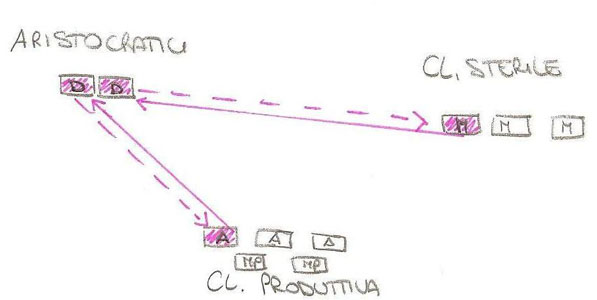 ARISTOCRATICI
CL. STERILE
D D
M M M
A A A
MP MP
CL. PRODUTTIVA